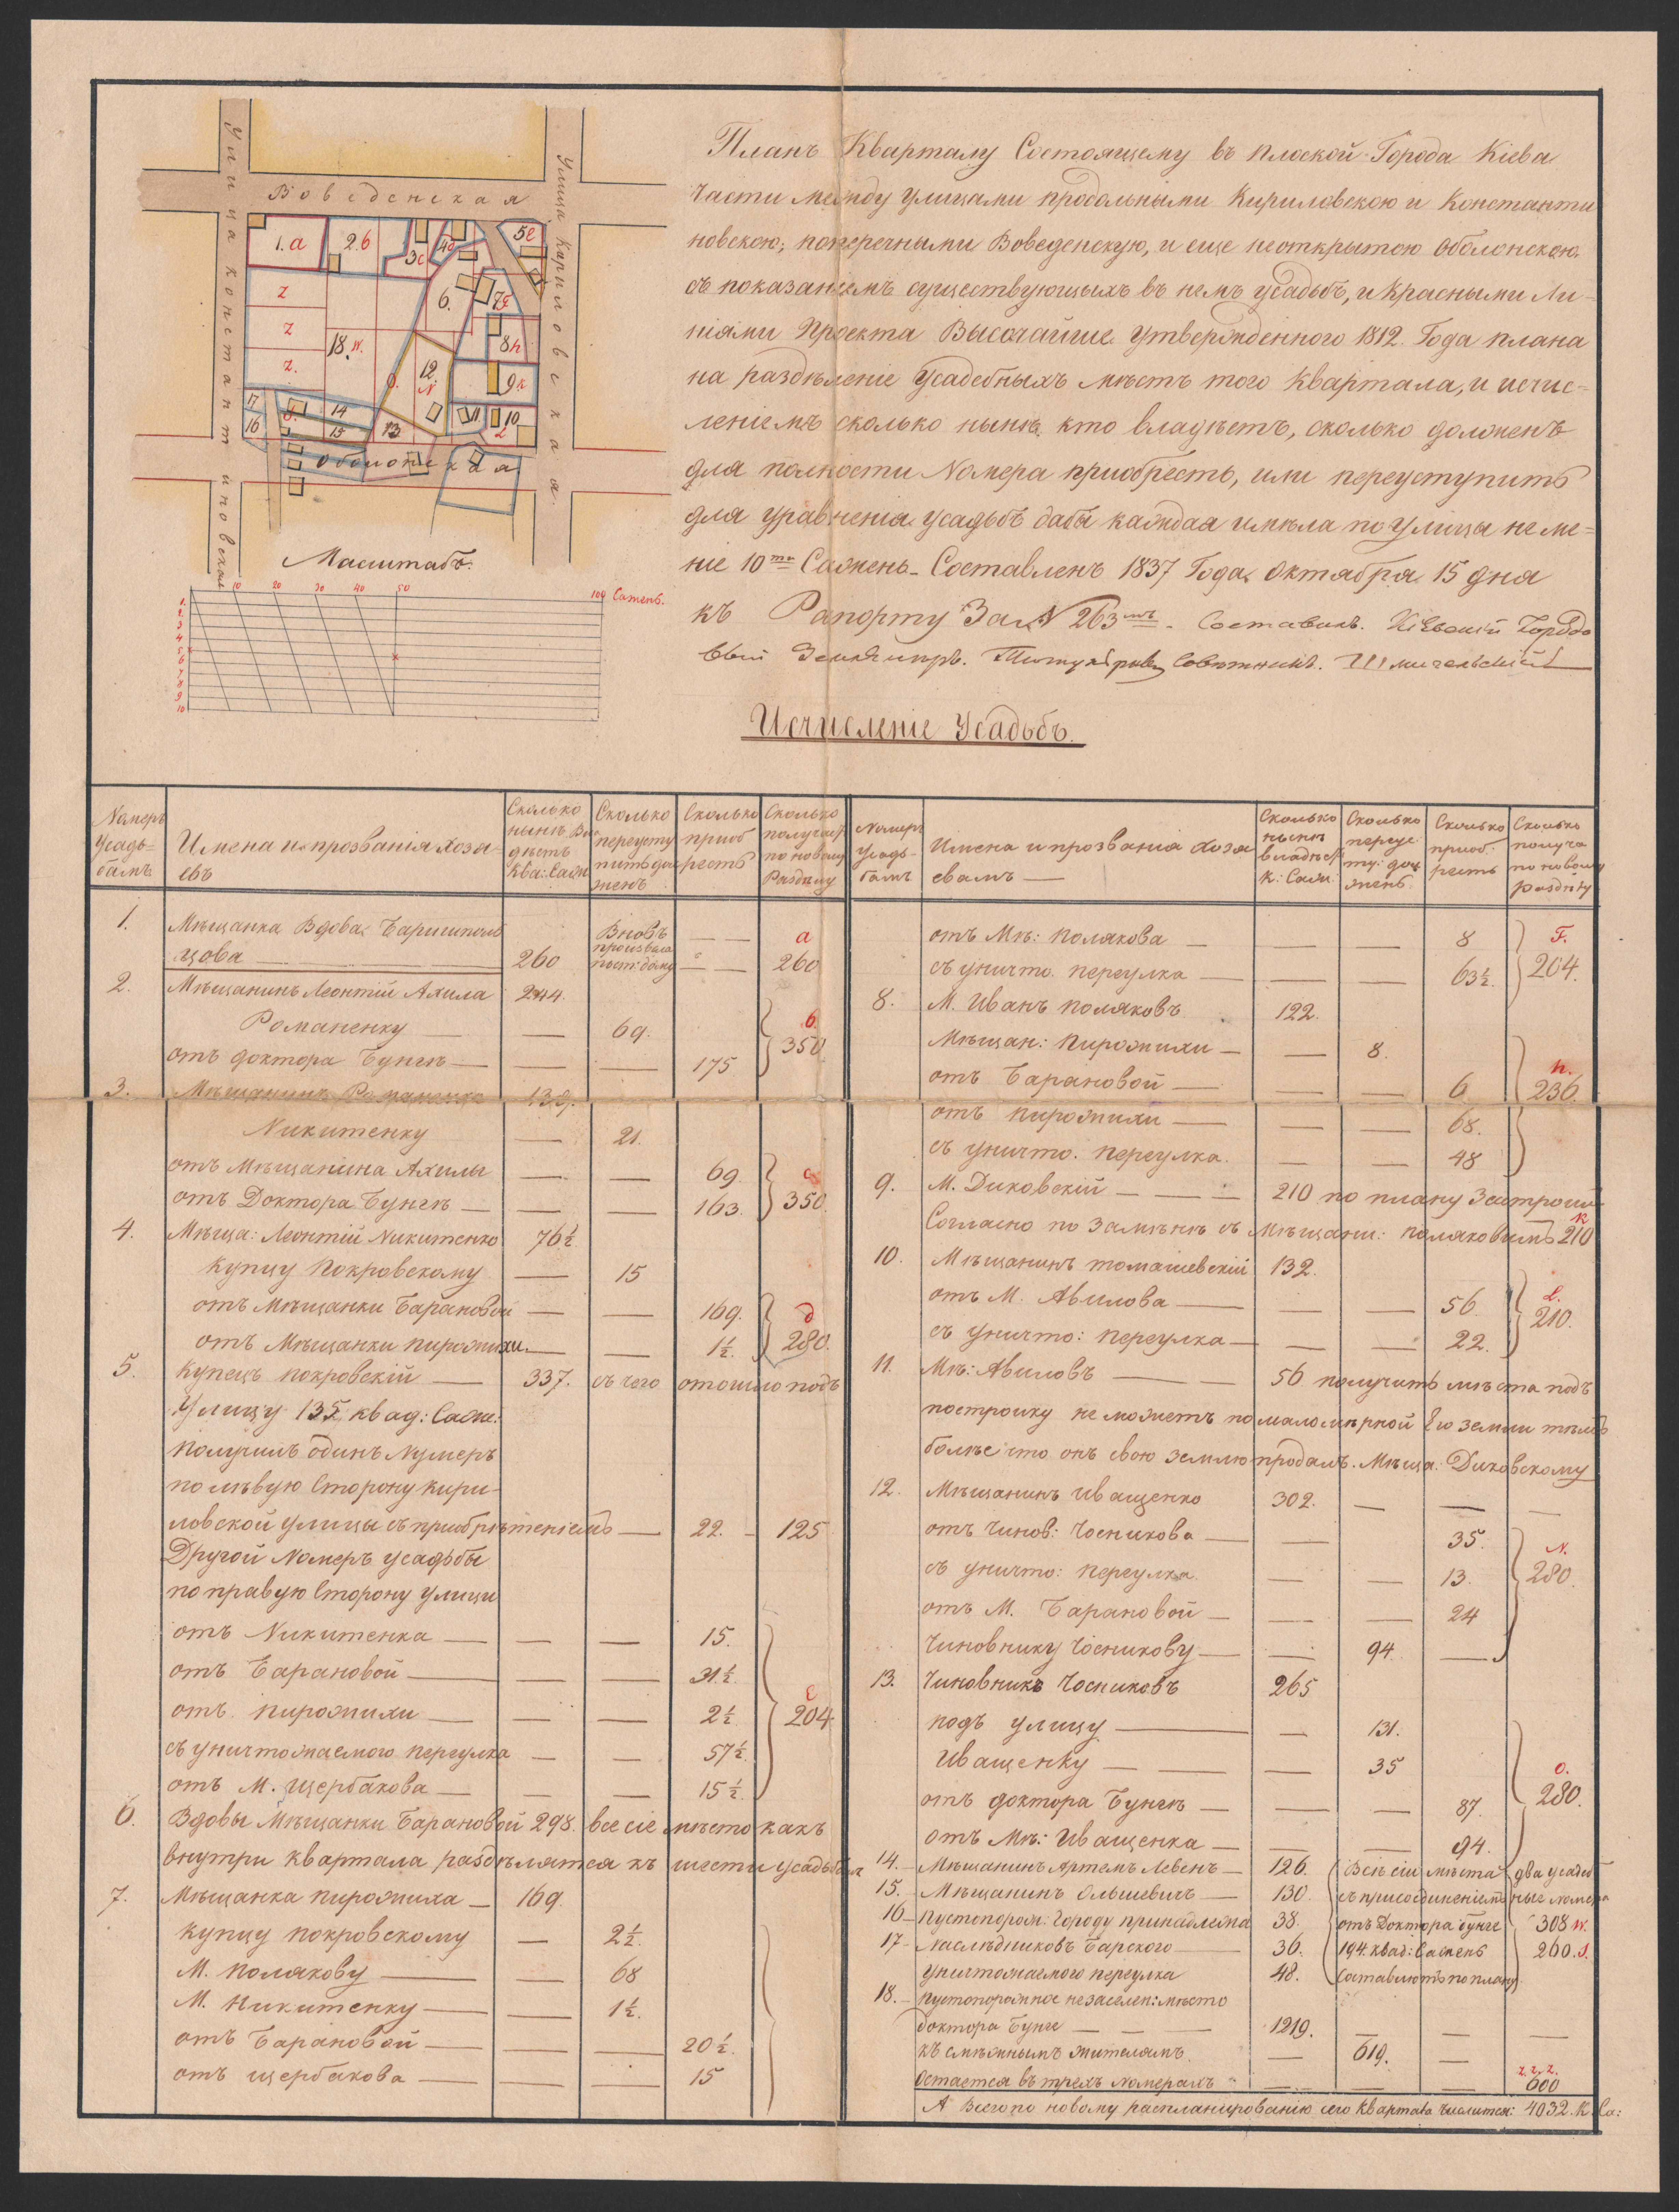 Планъ Кварталу Состоящему въ плоской Города Кіева
части между улицами продольными Кириловскою и Константи
новскою, поперечными Воведенскую, и еще неоткрытою Оболонскою
съ показаніемъ существующыхъ въ немъ усадьбъ, и красными Ли-
ніями Проекта Высочайше утвержденного 1812. Года плана
на раздѣленіе Усадебныхъ мѣстъ того Квартала, и исчис=
леніемъ сколько нынѣ кто владѣетъ, сколько долженъ
для полности Номера приобресть, или переуступить
для уравненія усадьбъ дабы каждая имѣла по улицы не ме=
ніе 10ти Сажень. Составленъ 1837 Года Октября 15 дня
къ Рапорту За N 263мъ. Составилъ. Кіевскій Городо
вый Землемиръ. Титулярный Совѣтникъ.
Воведенская
Улица Константиновская
Улица Кариловская
Оболонская
1. a
2. b
3 c
4 d
5 e
6.
7 F
8 h
9 к
10 L
11
12 N
13
14
15
16
17
18. w.
z
z
z.
O.
Масштабъ.
10 20 30 40 50 100 Сажень.
1. 2 3 4 5 6 7 8 9 10
Исчисленіе Усадьбъ.
Номеръ Усадь= бамъ
Имена и прозванія хозя евъ
Сколько нынѣ Вла дѣетъ Ква: Саж
Сколько переусту пить дол женъ
Сколько приоб ресть
Сколько получаетъ по новому Раздѣлу
1. Мѣщанка Вдова Баришполь
цова 260 Вновь 260 a
2. Мѣщанинъ Леонтій Ахила 244.
Романенку — 69. b. 350
отъ доктора Бунге — — 175
3. Мѣщанинъ Романенко 139.
Никитенку — 21.
отъ Мѣщанина Ахилы — — 69 c
отъ Доктора Бунге — — 163. 350.
4. Мѣща: Леонтій Никитенко 76½
Купцу Покровскому — 15
отъ Мѣщанки Барановой — — 169. d
отъ Мѣщанки пирожихи — — 1½. 280.
5. Купецъ покровскій — 337. съ чего отошло подъ
Улицу 135 квад: Саж:
Получилъ одинъ Нумеръ
по лѣвую Сторону Кири-
ловской улицы съ приобрѣтеніемъ — 22. - 125
Другой Номеръ усадьбы
по правую Сторону улици
отъ Никитенка — — — 15.
отъ Барановой — — — 31½.
отъ пирожихи — — — 2½ e 204
съ уничтожаемого переулка — — 57½
отъ М. Щербакова — — — 15½.
6. Вдовы Мѣщанки Барановой 298. все сіе мѣсто какъ
внутри квартала раздѣлятся къ шести усадьбамъ
7. Мѣщанка пирожиха — 169.
Купцу покровскому — 2½.
М. Полякову — — 68
М. Никитенку — — 1½.
отъ Барановой — — — 20½.
отъ щербакова — — — 15
Номеръ Усадь- бамъ
Имена и прозванія хозя евамъ —
Сколько нынѣ владѣетъ К: Саж
Сколько переус ту: дол женъ
Сколько приоб: ресть
Сколько получа по новому раздѣлу
отъ Мѣ: Полякова — — — 8 F.
съ уничто. переулка — — — 63½. 204.
8. М. Иванъ Поляковъ 122.
Мѣщан: Пирожихи — — 8.
отъ Барановой — — — 6 h. 236.
отъ пирожихи — — — 68.
съ уничто. переулка. — — 48
9. М. Диковскій — — — 210 по плану
Согласно по замѣнѣ съ Мѣщани: Поляковымъ к 210
10. Мѣщанинъ томашевскій 132.
отъ М. Авилова — — — 56 L.
съ уничто: переулка — — — 22. 210.
11. Мѣ: Авиловъ — — 56 получить мѣста подъ
постройку не можетъ по маломѣрной Его земли тѣмъ
болѣе что онъ свою землю продалъ. Мѣща. Диковскому
12. Мѣщанинъ Иващенко 302. — — —
отъ Чинов: Чосникова — — 35.
съ уничто: переулка. — — 13. N. 280.
отъ М. Барановой — — — 24
Чиновнику Чосникову — — 94. —
13. Чиновникъ Чосниковъ 265
подъ улицу — — 131.
Иващенку — — 35
отъ доктора Бунге — — — 87. O. 280.
отъ Мѣ: Иващенка — — — 94.
14. Мѣщанинъ Артемъ Левенъ — 126. Всѣ сіи мѣста два усадеб
15. Мѣщанинъ Ольшевичъ — 130. съ присоединеніемъ ные номера
16 - Пустопорож: Городу принадлежа 38. отъ Доктора бунге 308 w.
17 - Наслѣдниковъ Барского — 36. 194. квад: Сажень 260. S.
уничтожаемого переулка 48. Составляютъ по плану
18. - Пустопорожнее незаселен: мѣсто
доктора Бунге — — — 1219. — — —
къ смѣжнымъ жителямъ. — 619. —
Остается въ трехъ номерахъ — — — z. z. z. 600
А Всего по новому распланированію сего квартала числится: 4032. К. Са: